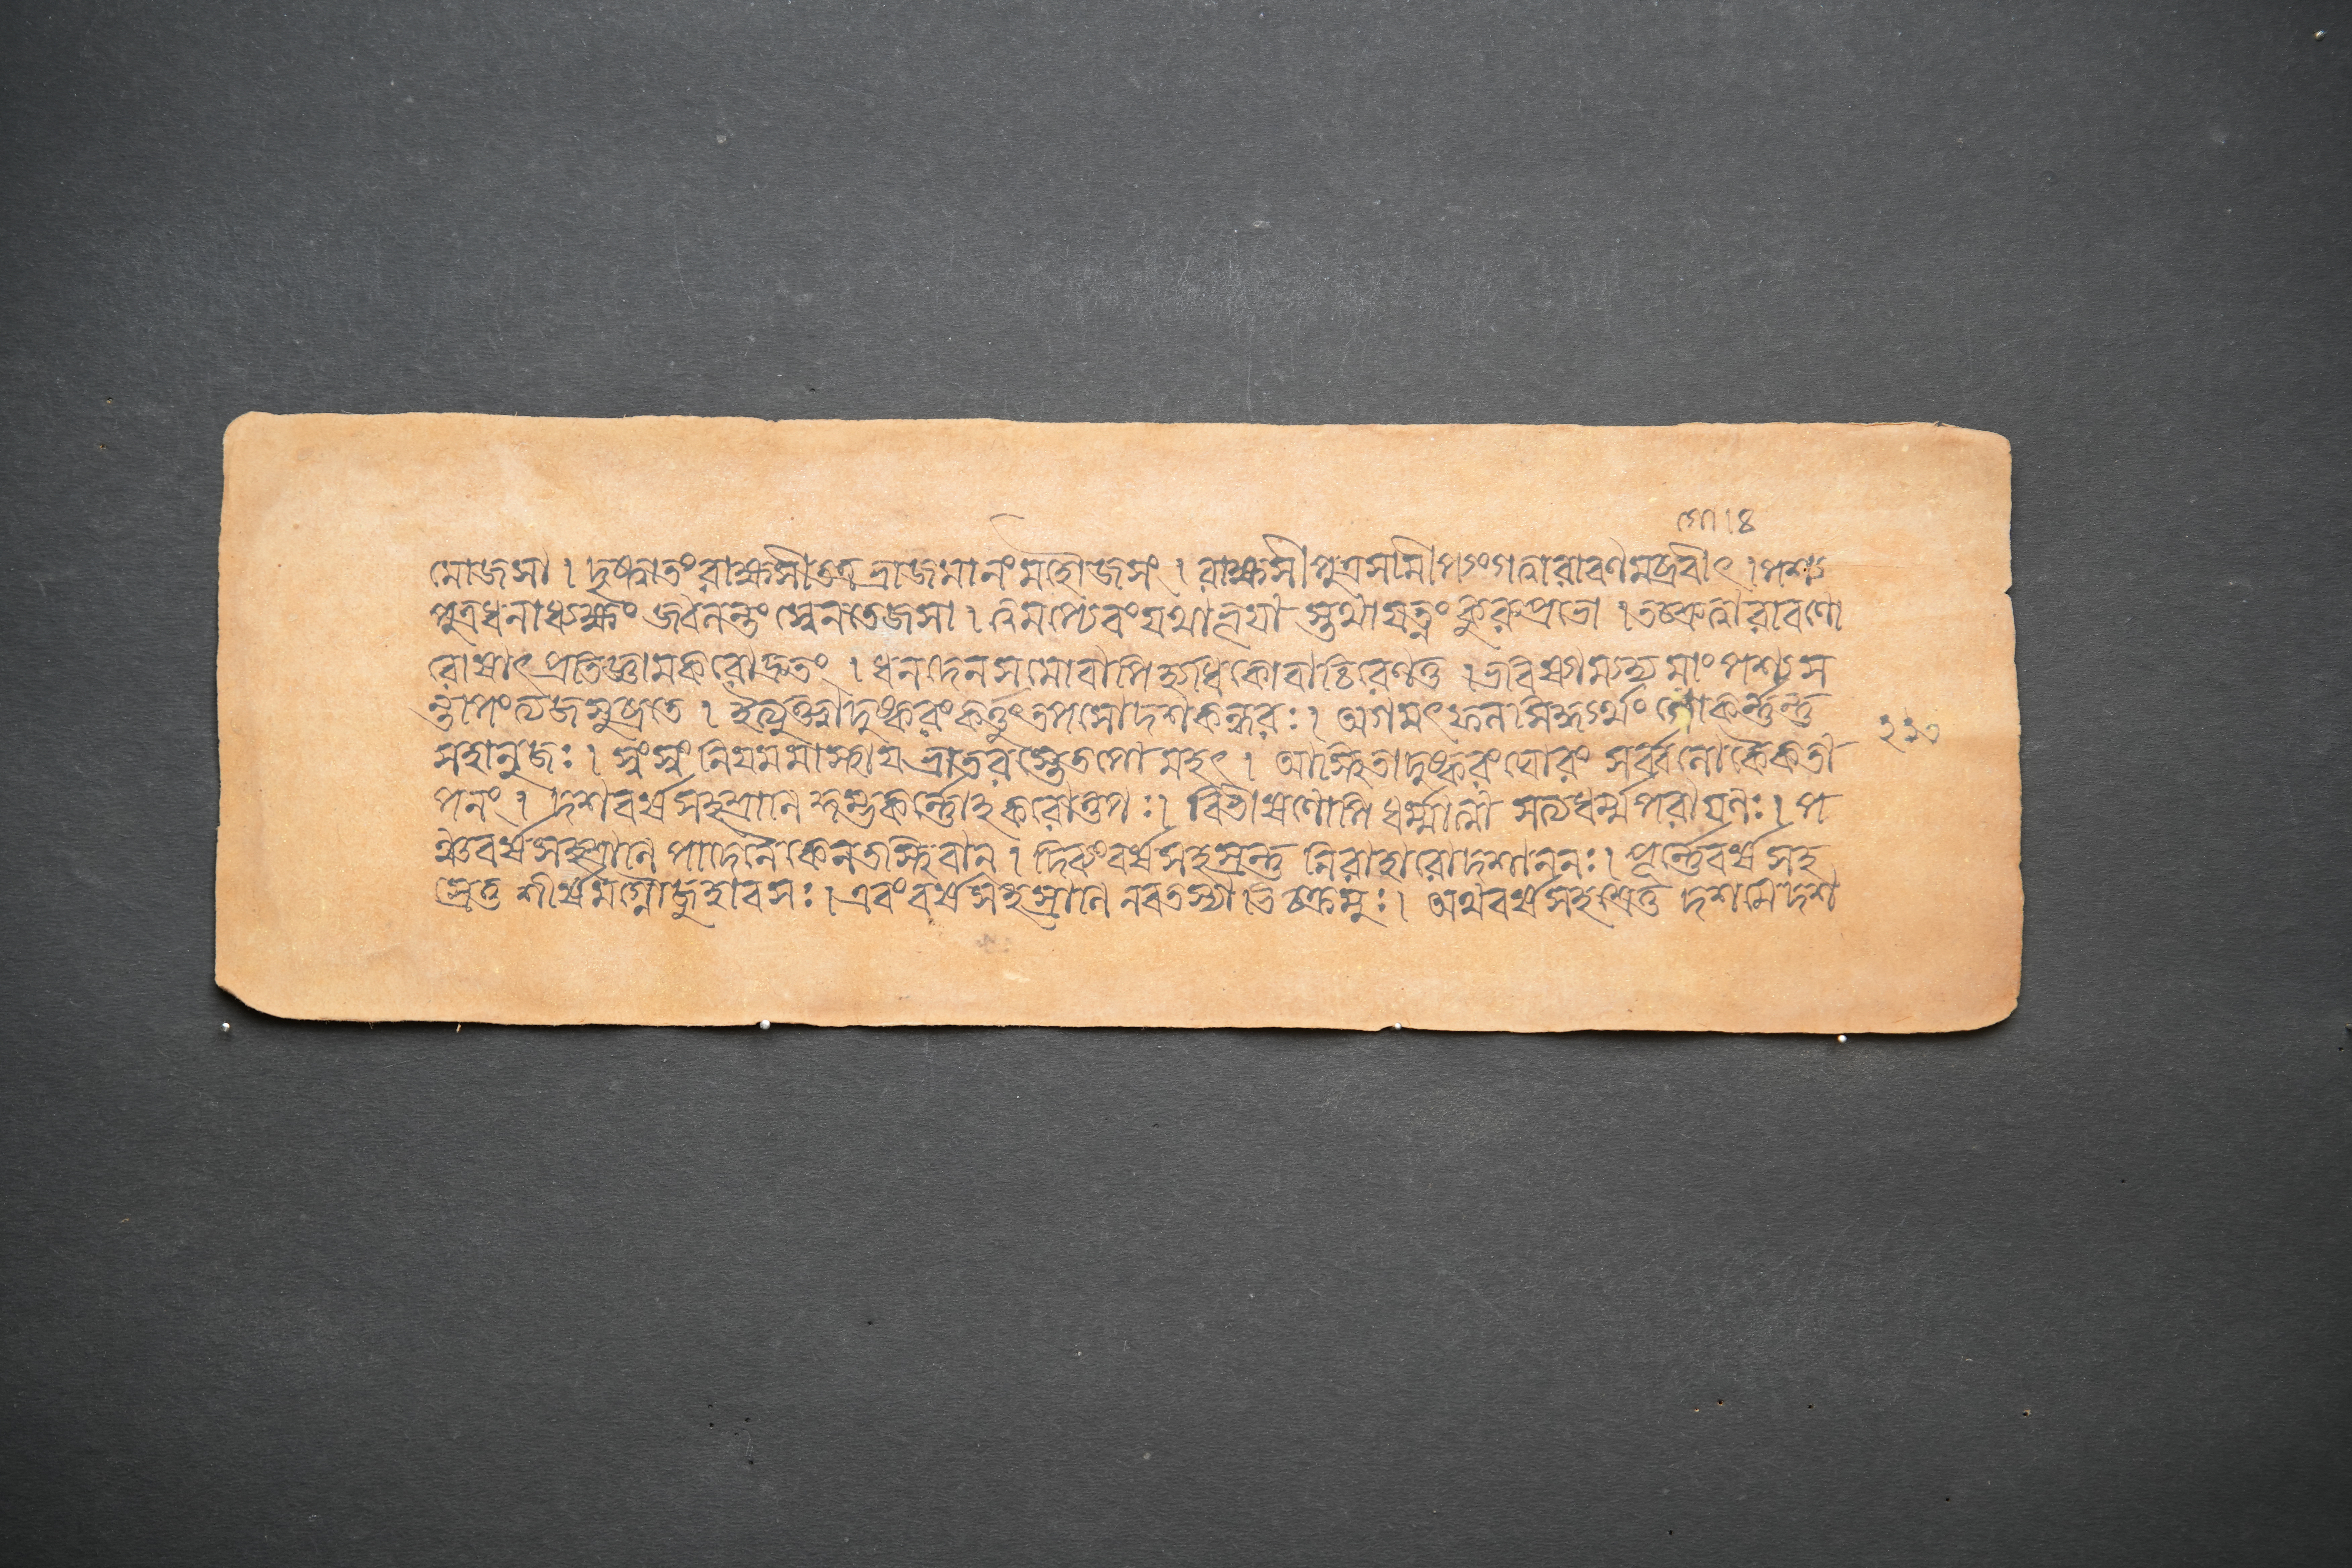 মৌজসা । দৃষ্ট্বাতংরাক্ষসীতত্রভ্রাজমানংমহৌজসং । রাক্ষসীপুত্রসমীপংগত্বারাবণমব্রবীৎ । পশ্য
পুত্রধনাধ্যক্ষং জ্বলন্তংস্বেনতেজসা । ত্বমপ্যেবংযথাভূয়া স্তথাযত্নংকুরুপ্রভো । তচ্ছ্রুত্বারাবণো
রোষাৎপ্রতিজ্ঞামকরোদ্দ্রুতং । ধনদেনসমোবাপিহ্যধিকোবাচিরেণতু । ভবিষ্যাম্যম্বমাংপশ্যস
ন্তাপংত্যজসুব্রতে । ইত্যুক্ত্বাদুষ্করংকর্ত্তুংতপসেদশকন্ধরঃ । অগমৎফলসিদ্ধ্যর্থং গোকর্ণন্তু
সহানুজঃ । স্বংস্বংনিয়মমাস্থায়ভ্রাতরস্তেতপোমহৎ । আস্থিতাদুষ্করংঘোরং সর্ব্বলোকৈকতা
পনং । দশবর্ষসহস্রাণি কুম্ভকর্ণোহকরোত্তপঃ । বিভীষণোপি ধর্ম্মাত্মা সত্যধর্ম্মপরায়ণঃ । প
ঞ্চবর্ষসহস্রাণি পাদেনৈকেনতস্থিবান । দিব্যংবর্ষসহস্রন্তু নিরাহারোদশাননঃ । পূর্ণেবর্ষসহ
স্রেতু শীর্ষমগ্নৌজুহাবসঃ । এবংবর্ষসহস্রাণি নবতস্যাতিচক্রমুঃ । অথবর্ষসহস্রেতু দশমেদশ